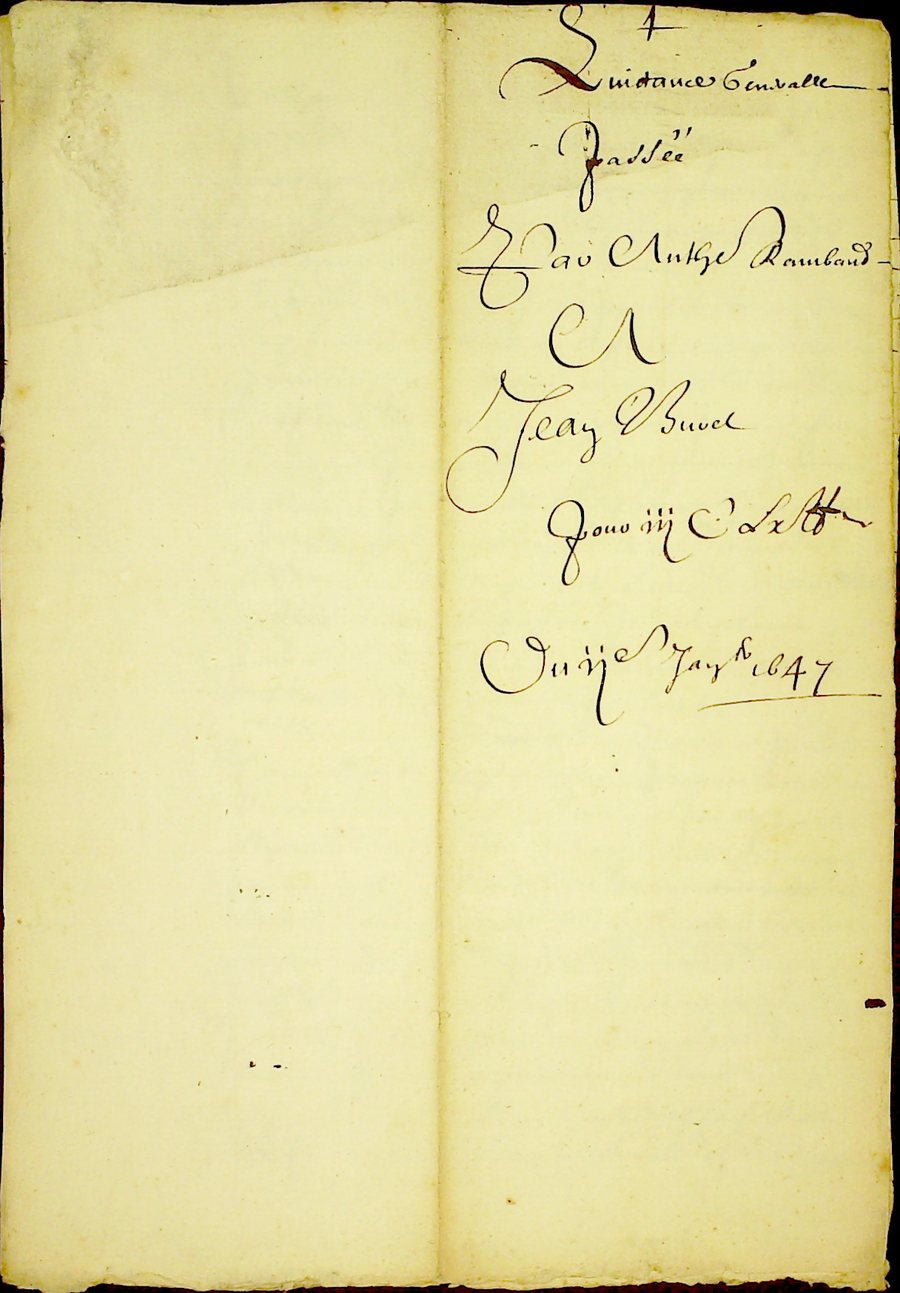 1
Quictance Generalle
passéé
Par Anthe Rambaud
A
Jean Buvel
pour iij C Lx ₶
Du ije Janvr 1647